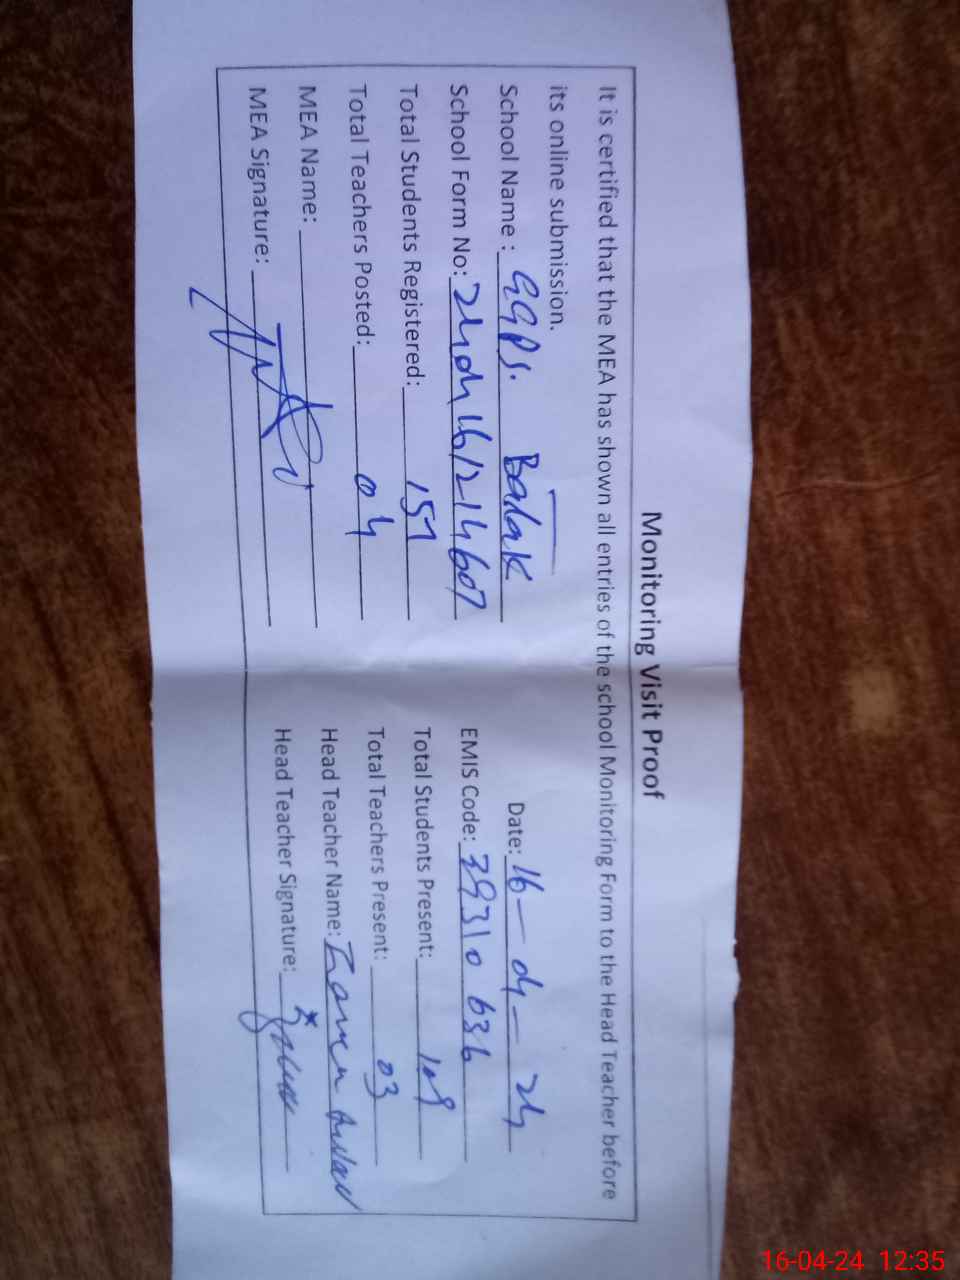 Monitoring Visit Proof
It is certified that the MEA has shown all entries of the school Monitoring Form to the Head Teacher before
its online submission.
School Name : GGPS. Badak Date: 16-04-24
School Form No: 240416/214607 EMIS Code: 39310636
Total Students Registered: 157 Total Students Present: 109
Total Teachers Posted: 04 Total Teachers Present: 03
MEA Name: Head Teacher Name:
MEA Signature: Head Teacher Signature:
16-04-24 12:35